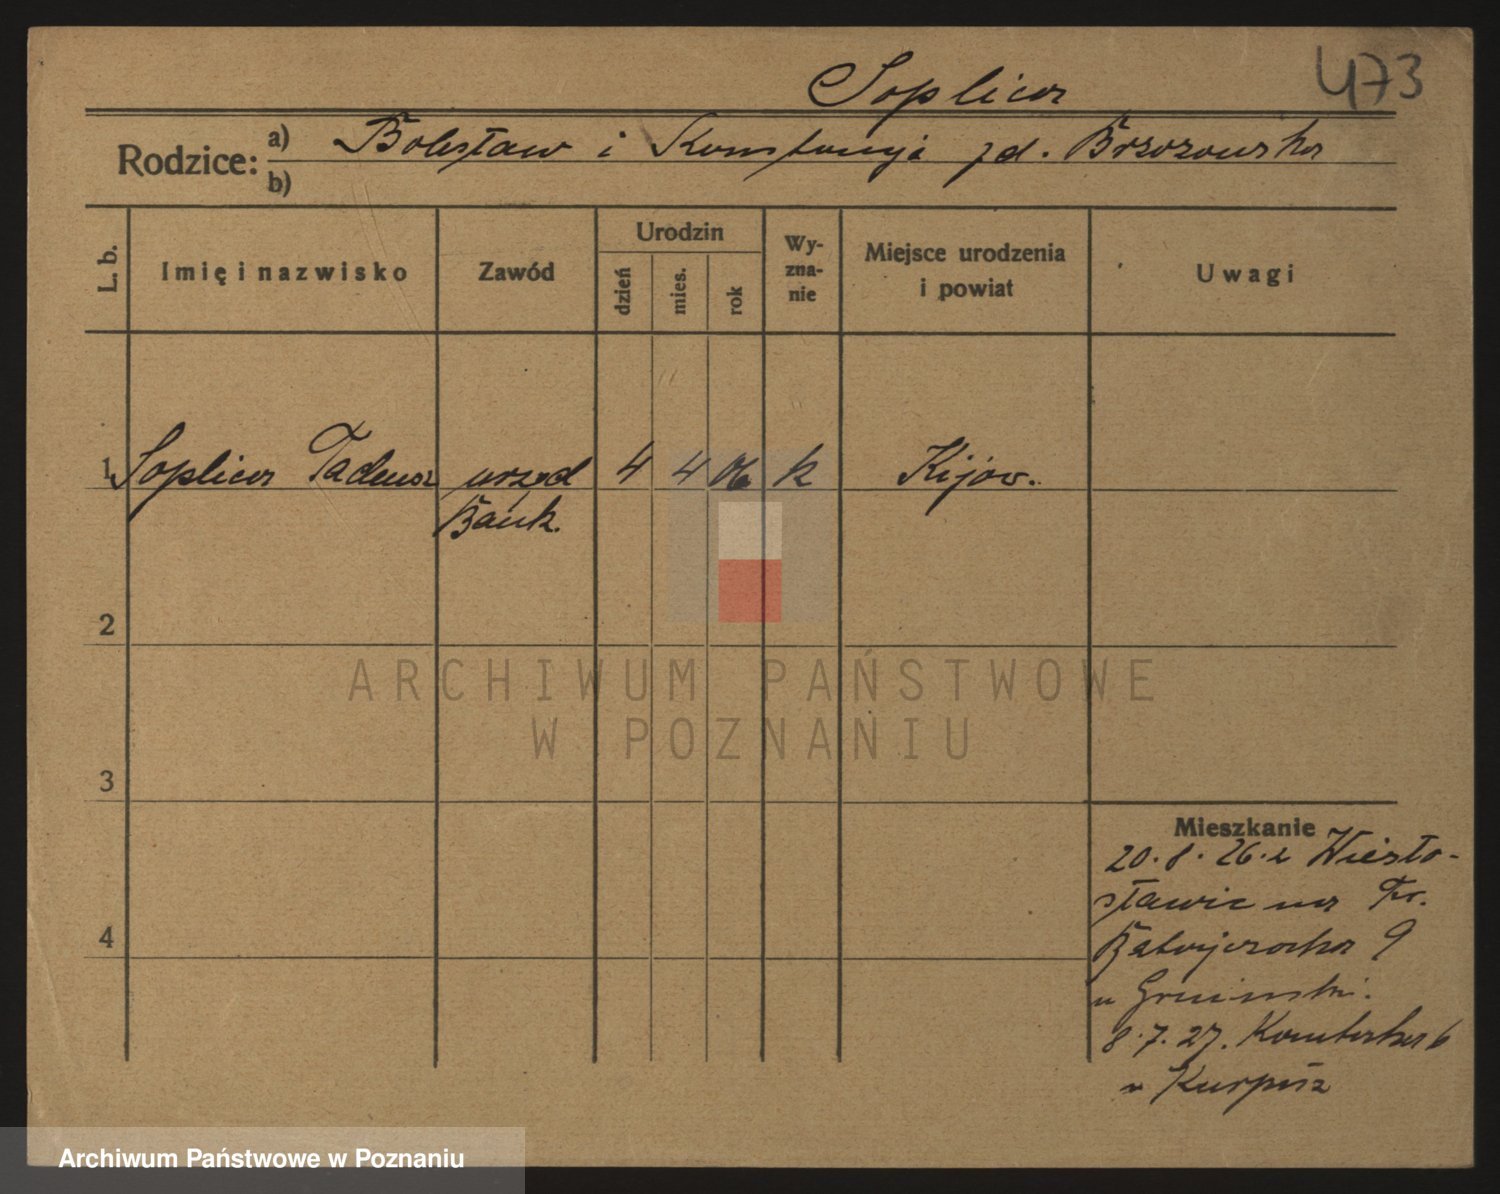 Soplica 473
Rodzice: a) Bolesław i Konstancja zd. Brzozowska
b)
L. b. Imię i nazwisko Zawód Urodzin dzień mies. rok Wy-zna-nie Miejsce urodzenia i powiat Uwagi
1 Soplica Tadeusz urzęd 4 4 06 k Kijów.
Bank.
2
ARCHIWUM PAŃSTWOWE
W POZNANIU
3
Mieszkanie
20.8.26. z
sławic na
4
9
u
8.7.27.
6
u Kurpisz
Archiwum Państwowe w Poznaniu